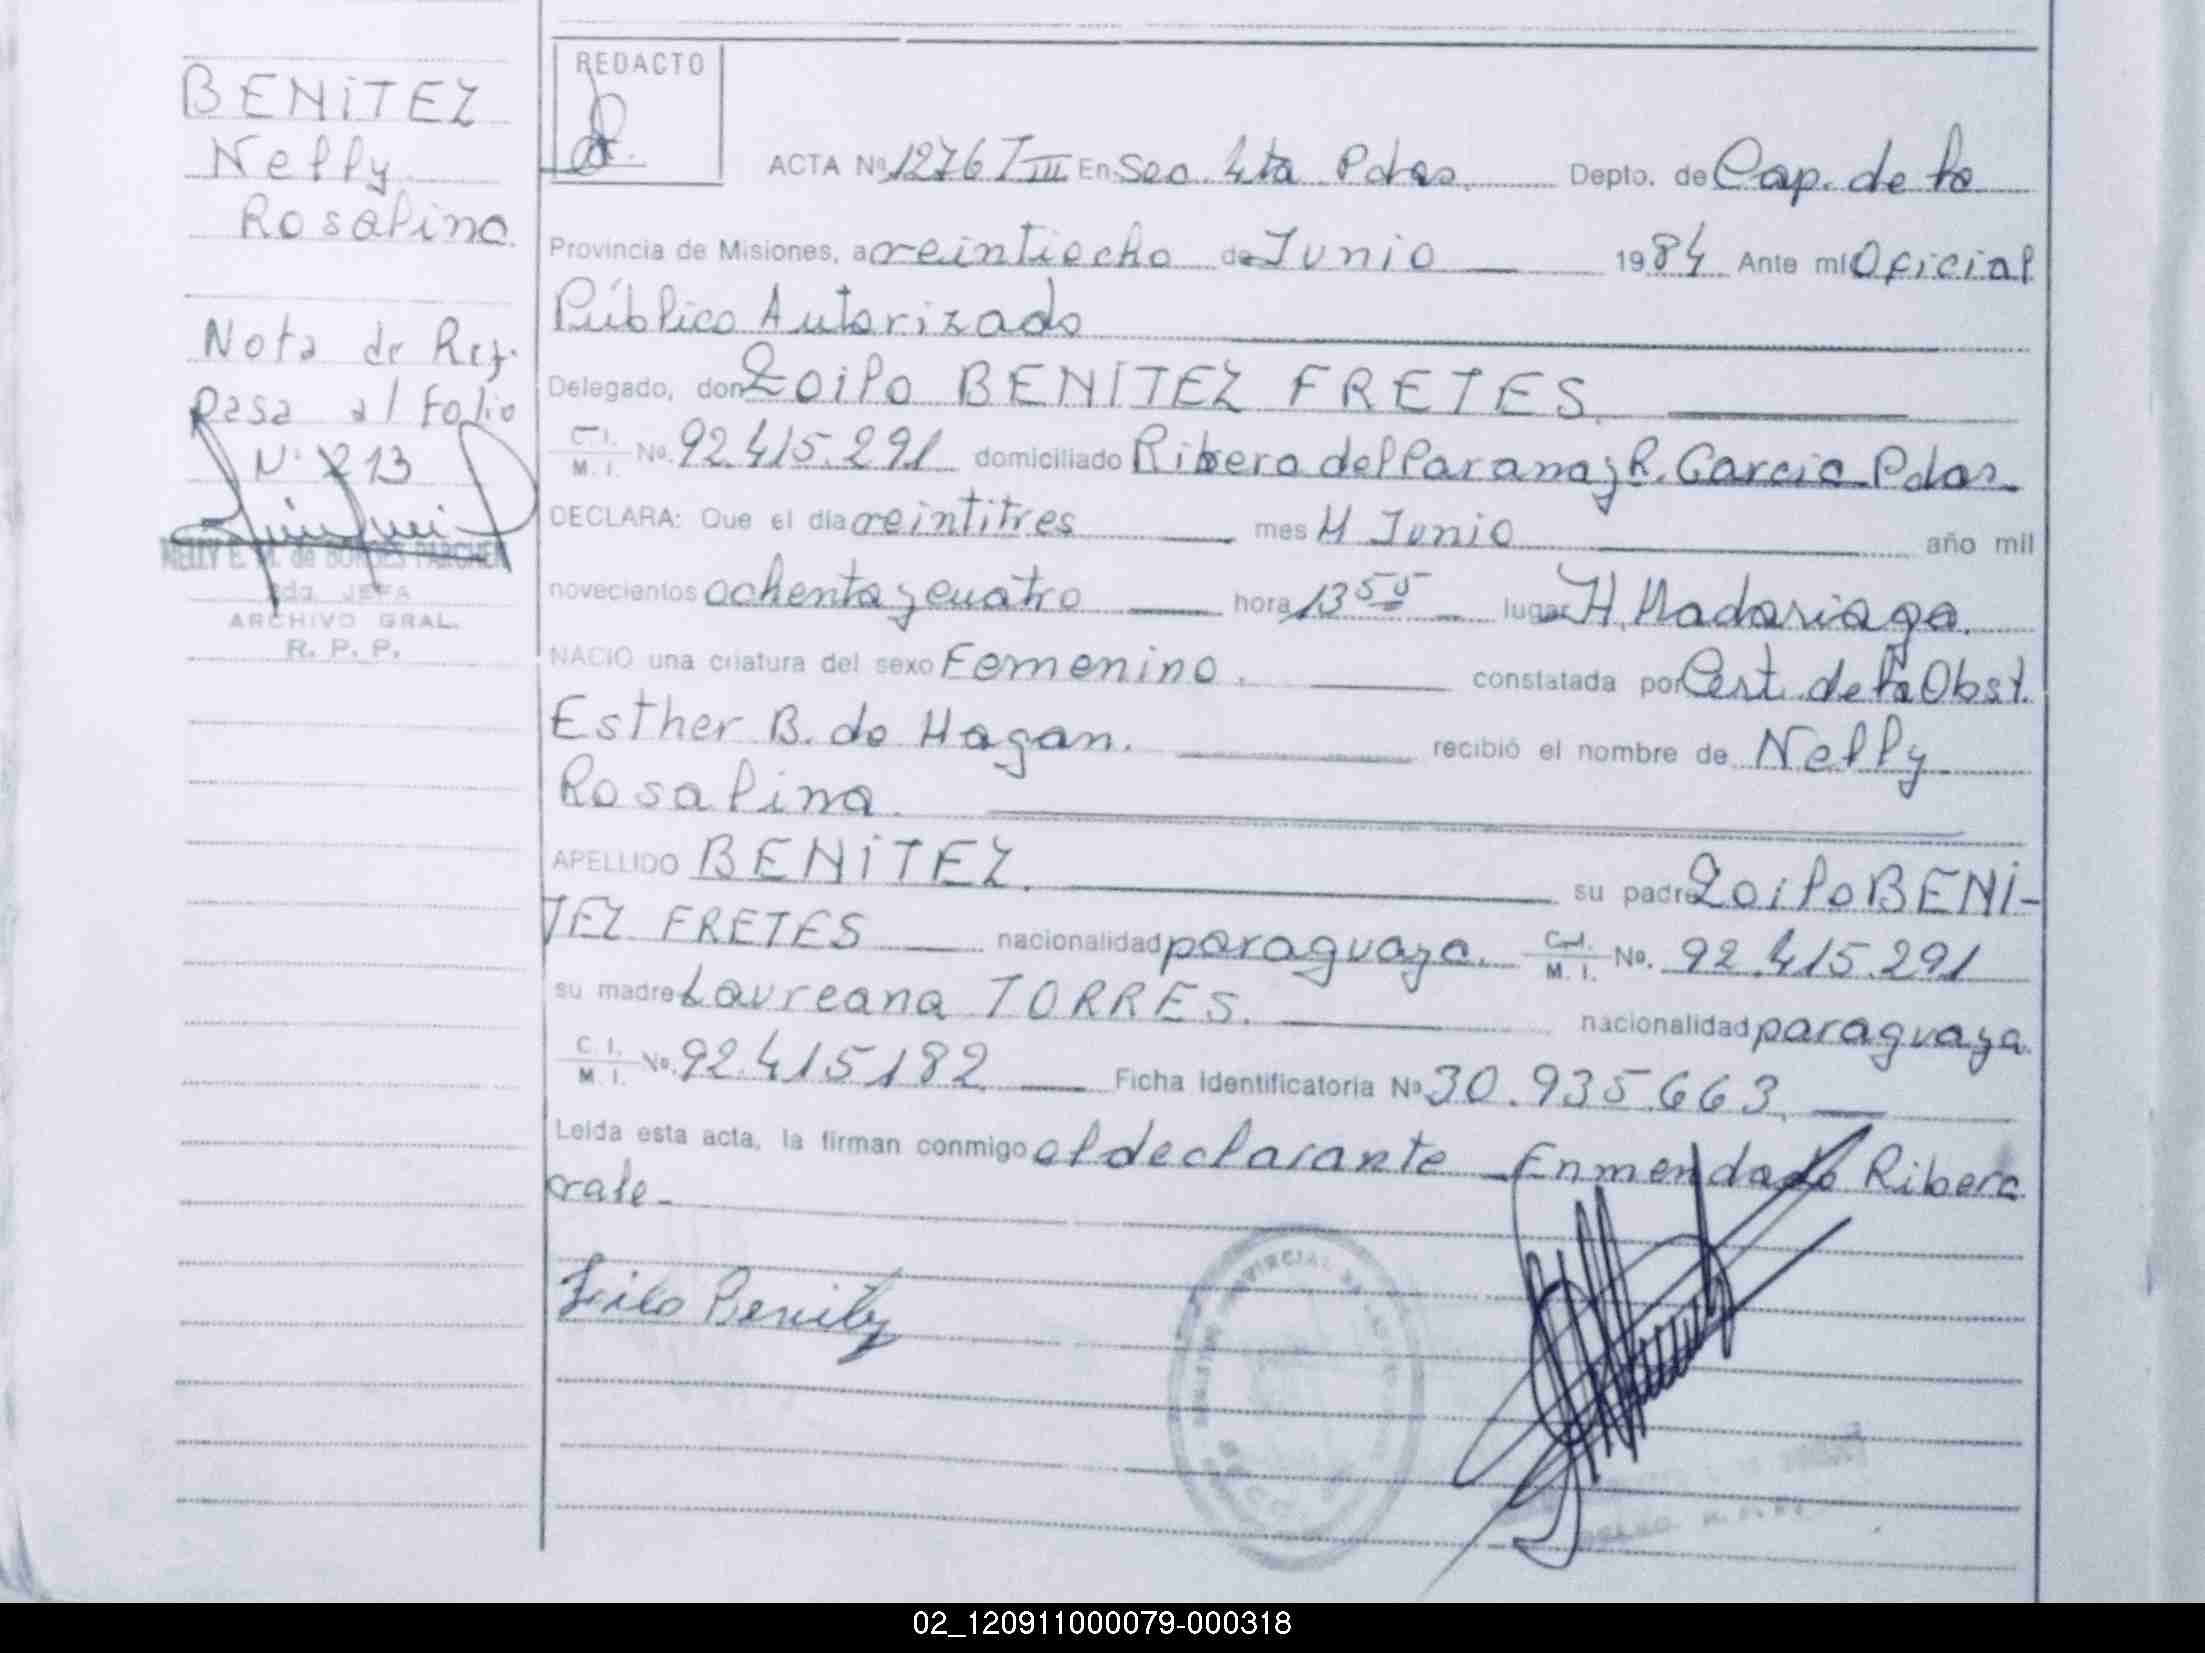 BENITEZ
Nelly
Rosalina.
Nota de Ref.
pasa al Folio
N° 213
NELLY E. M. de BORGES PARCHEN
2da. JEFA
ARCHIVO GRAL.
R. P. P.
REDACTO
ACTA Nº 1276 T III En Sec. 4ta Pdas. Depto. de Cap. de la
Provincia de Misiones, a veintiocho de Junio 1984 Ante mí Oficial
Público Autorizado
Delegado, don Zoilo BENITEZ FRETES.
C. I. M. I. No. 92.415.291 domiciliado Ribera del Parana y R. Garcia Pdas
DECLARA: Que el día veintitres mes Junio año mil
novecientos ochenta y cuatro hora 13 55 lugar H. Madariaga.
NACIO una criatura del sexo Femenino. constatada por Cert. de la Obst.
Esther B. de Hagan. recibió el nombre de Nelly
Rosalina.
APELLIDO BENITEZ. su padre Zoilo BENI-
TEZ FRETES nacionalidad paraguaya. C. I. M. I. No. 92.415.291
su madre Laureana TORRES. nacionalidad paraguaya.
C. I. M. I. No. 92.415182 Ficha Identificatoria Nº 30.935.663.
Leída esta acta, la firman conmigo el declarante Enmendado Ribera
vale-
Zoilo Benitez
02_120911000079-000318